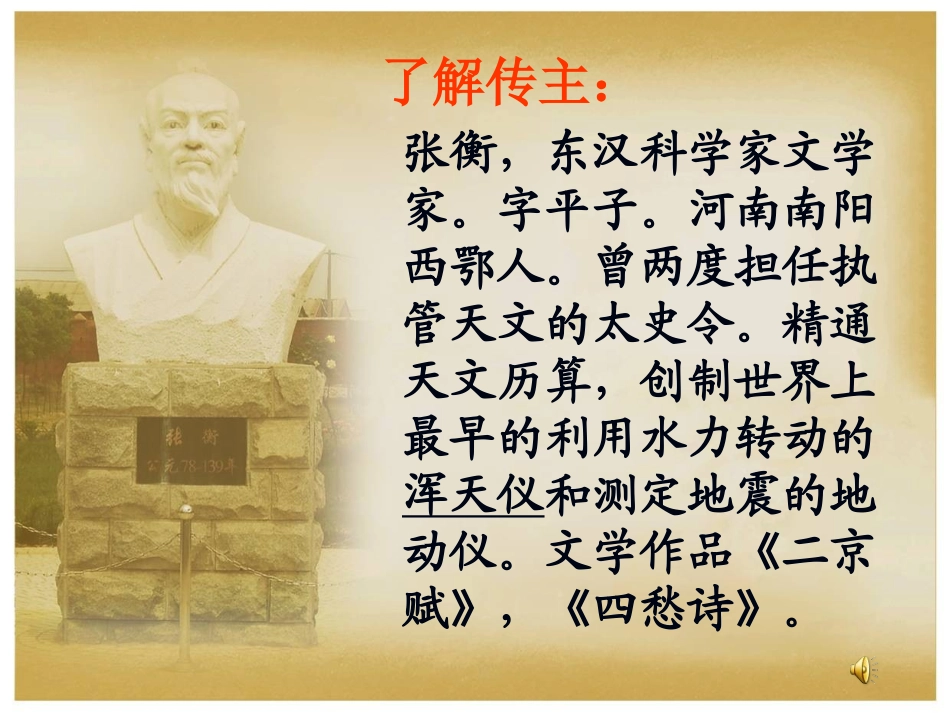 了解传主：
张衡，东汉科学家文学
家。字平子。河南南阳
西鄂人。曾两度担任执
管天文的太史令。精通
天文历算，创制世界上
最早的利用水力转动的
浑天仪和测定地震的地
动仪。文学作品《二京
赋》，《四愁诗》。
张 衡
公元78-139年